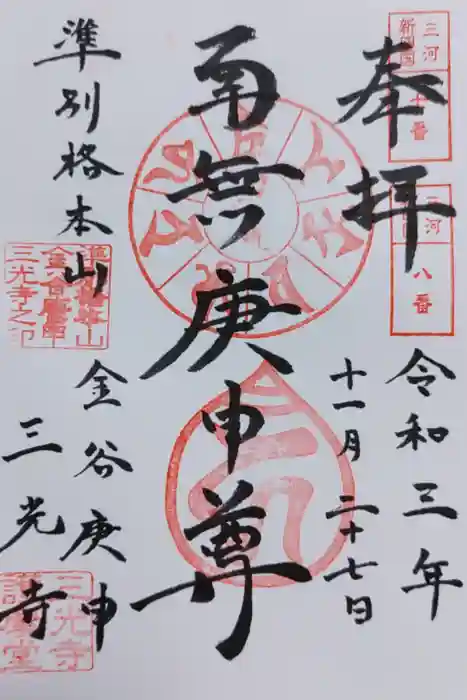 奉拝
三河
新四国
十番
三河
八番
令和三年
十一月二十七日
南無庚申尊
準別格本山
金谷庚申
三光寺
三光寺之印